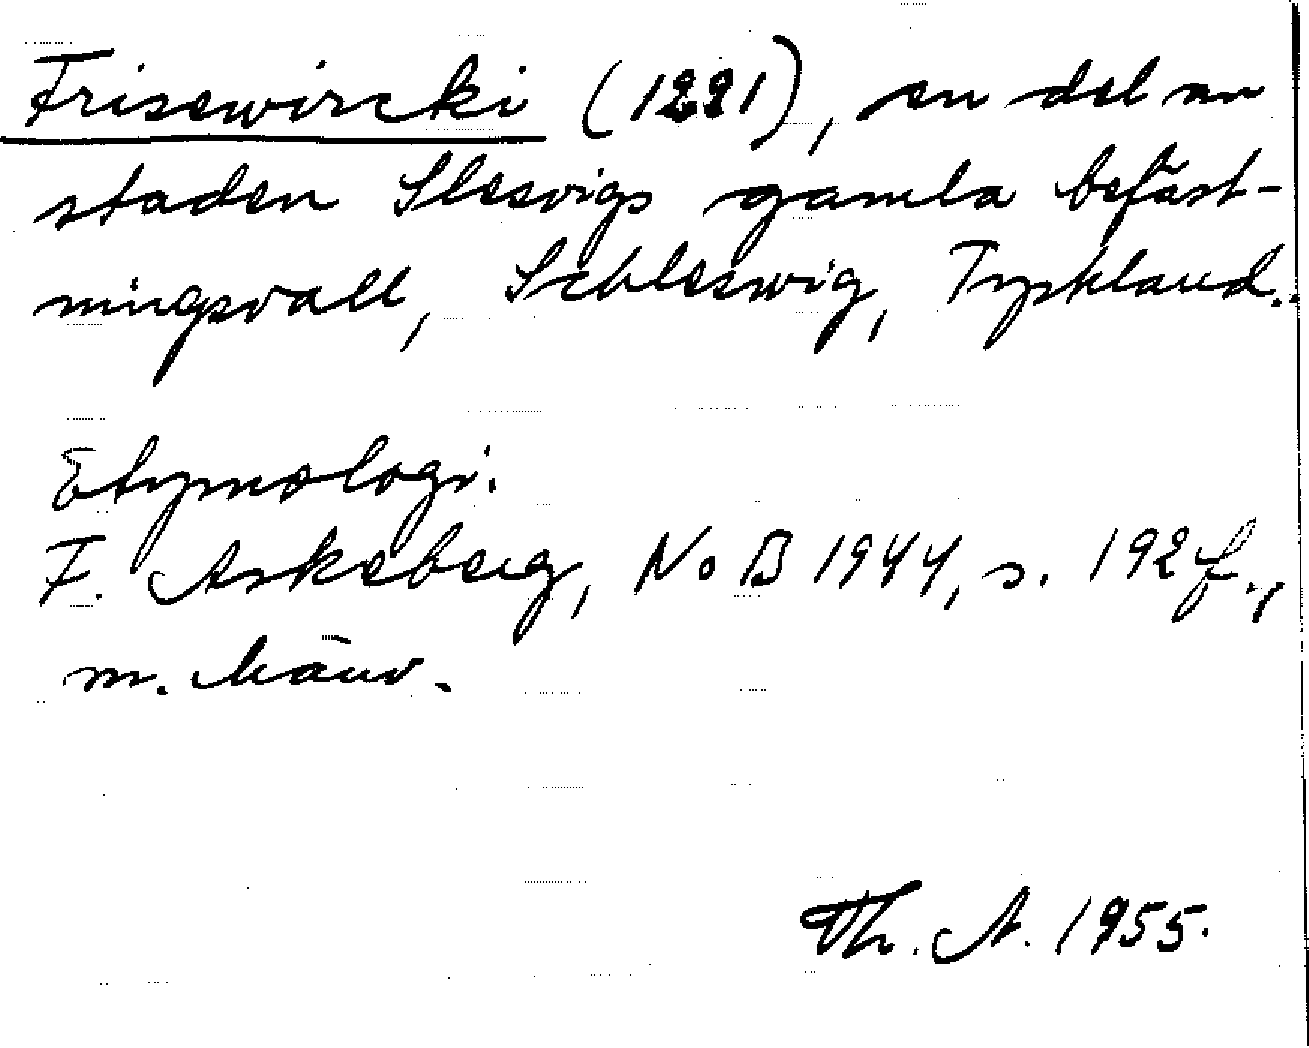 Frisewircki (1221), en del av
staden Slesvigs gamla befäst-
ningsvall, Schleswig, Tyskland.
Etymologi.
F. Askeberg, NoB 1944, s. 192 f.,
m. hänv.
Th. A. 1955.